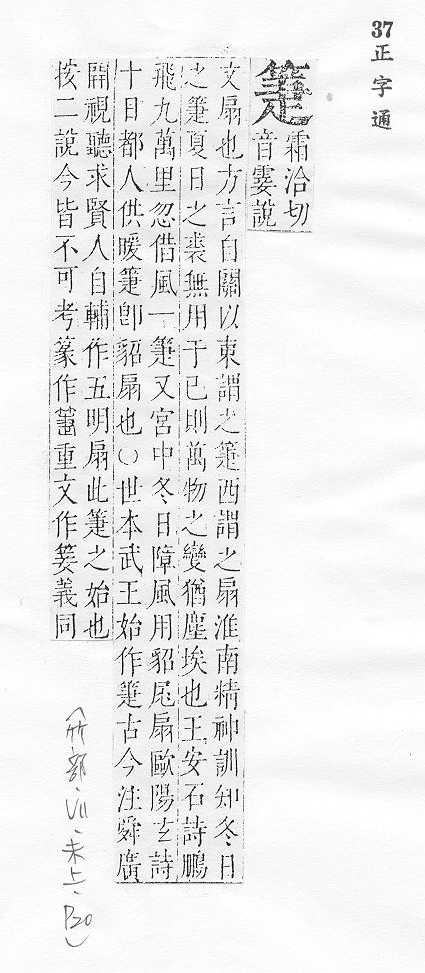 37正字通
箑
霜洽切
音霎說
文扇也方言自關以東謂之箑西謂之扇淮南精神訓知冬日
之箑夏日之裘無用于己則萬物之變猶塵埃也王安石詩鵬
飛九萬里忽借風一箑又宮中冬日障風用貂尾扇歐陽玄詩
十月都人供暖箑卽貂扇也○世本武王始作箑古今注舜廣
開視聽求賢人自輔作五明扇此箑之始也
按二說今皆不可考篆作重文作義同
(竹部、VII、未上、P20)